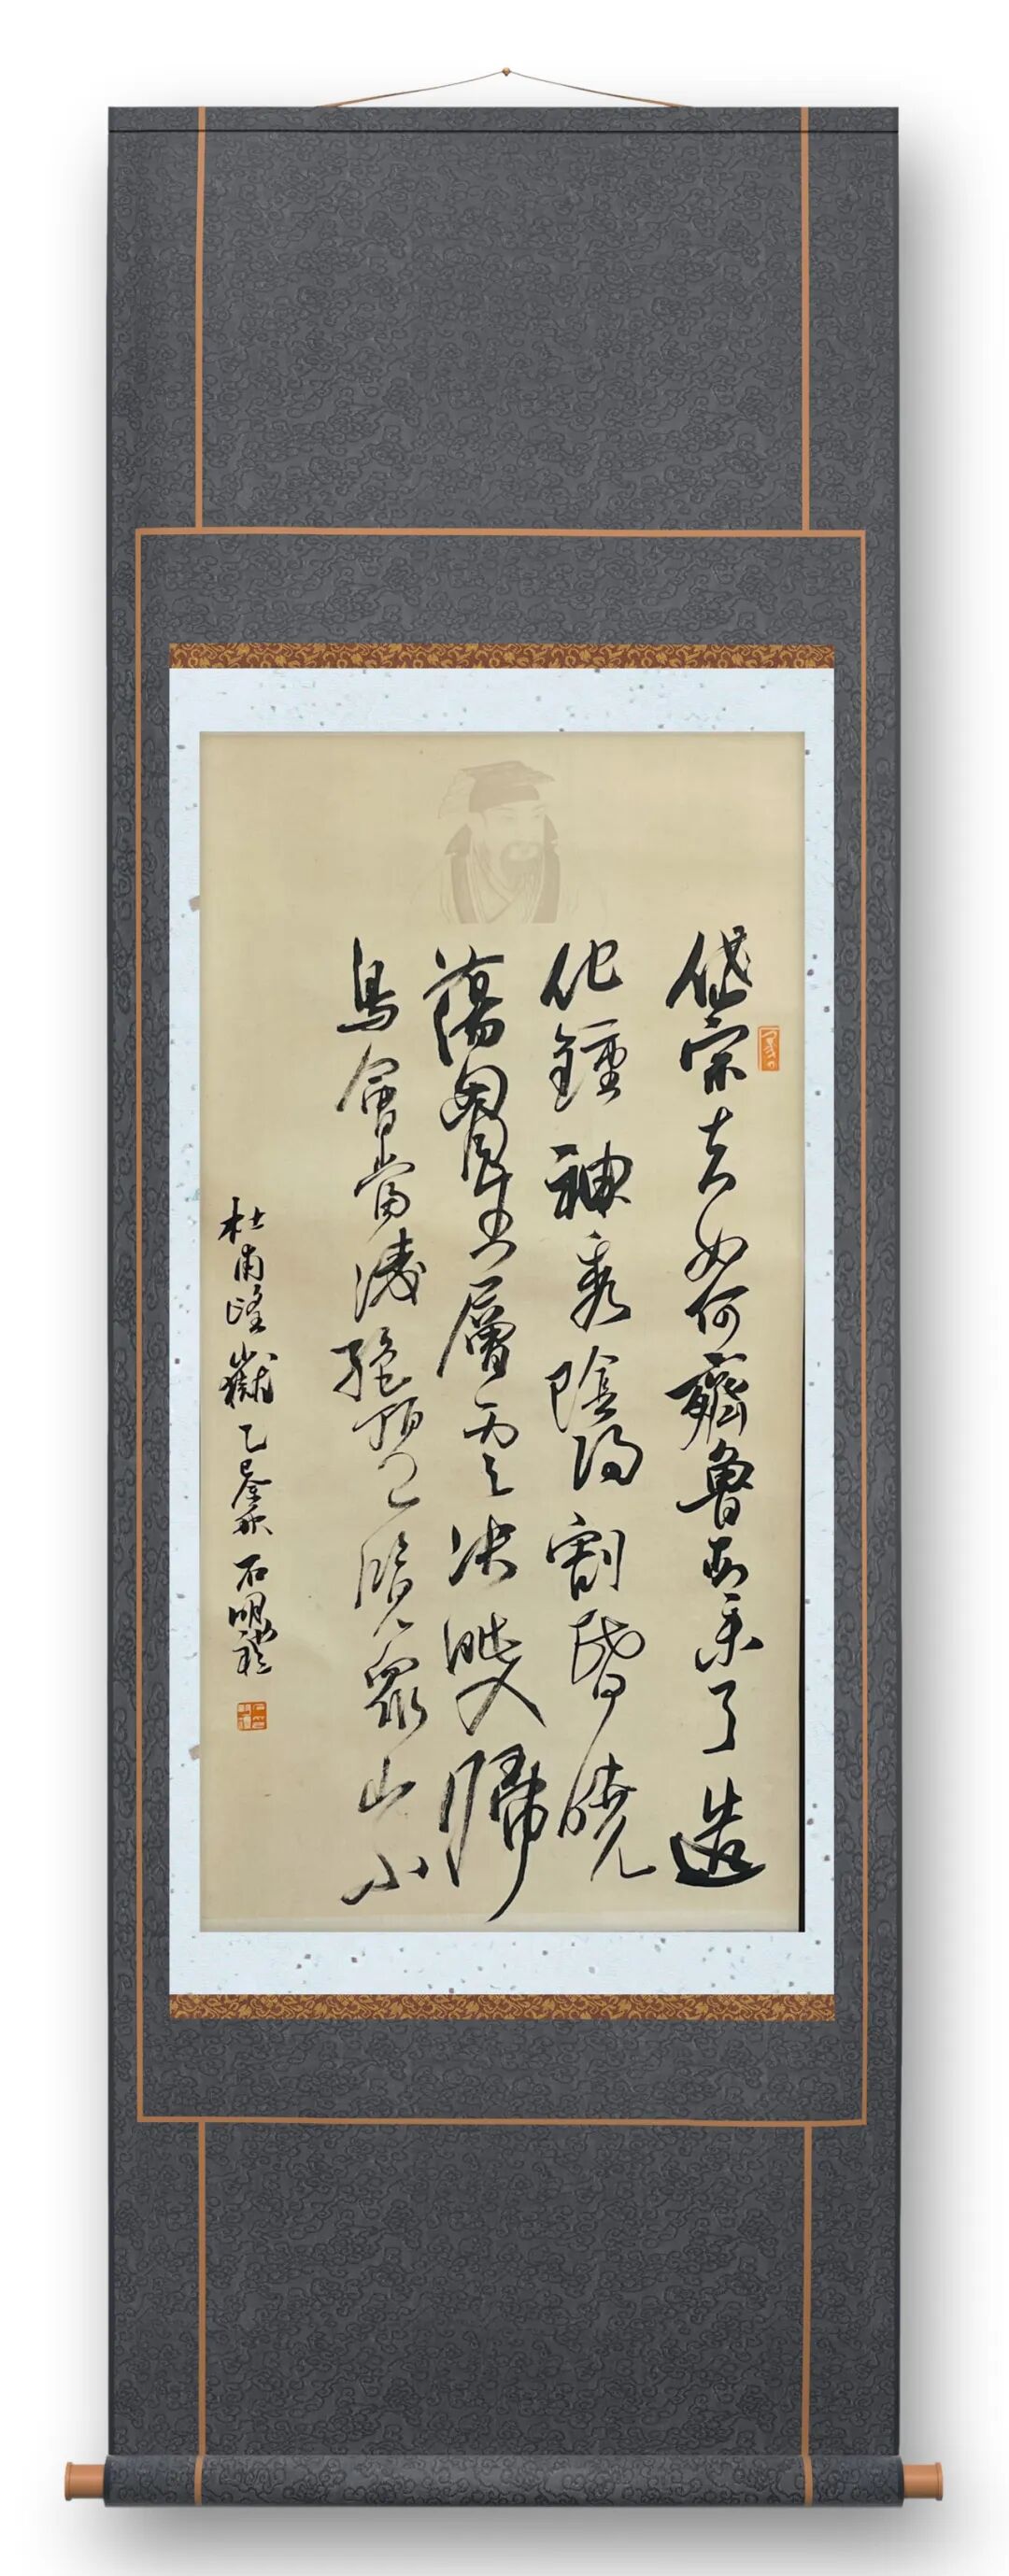 岱宗夫如何齊魯青未了造
化鍾神秀陰陽割昏曉
蕩胸生層雲決眥入歸
鳥會當淩絕頂一覽眾山小
杜甫望嶽 乙巳金秋 石明禮